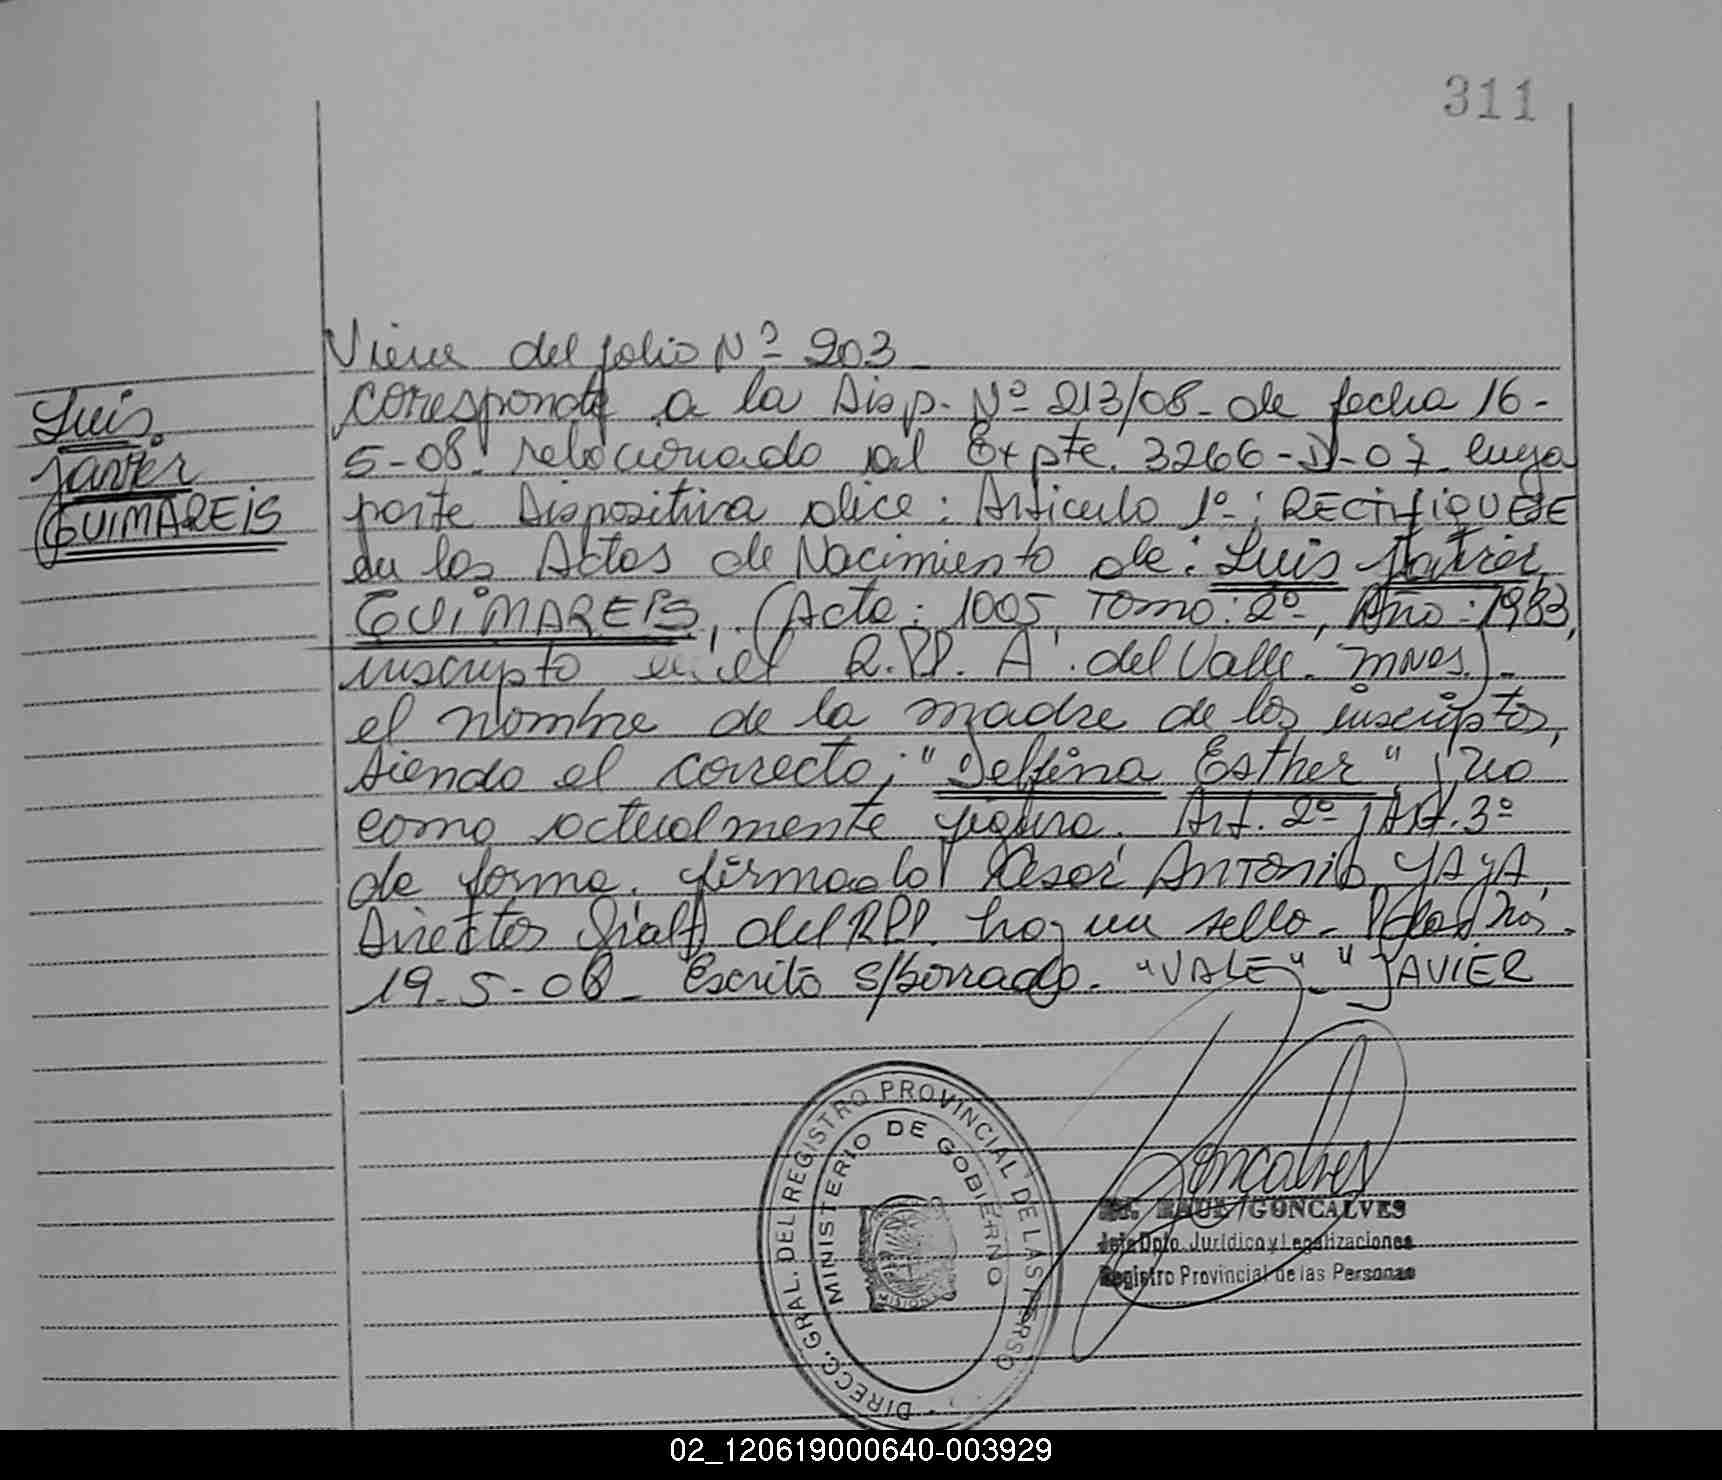 311
Luis
Javier
GUIMAREIS
Viene del folio Nº 203
corresponde a la Disp. Nº 213/08 - de fecha 16-
5-08. relacionado al Expte. 3266-D-07. cuya
parte Dispositiva dice: Articulo 1º: RECTIFIQUESE
en las Actas de Nacimiento de: Luis Javier
GUIMAREIS, (Acta: 1005, Tomo: 2º, Año: 1983,
inscripto en el R.PP. A. del Valle. Mnes.)-
el nombre de la madre de los inscriptos,
siendo el correcto; "Delfina Esther" y no
como actualmente figura. Art. 2º y Art. 3º
de forma. firmado Cesar ANTONIO YAYA
Director Gral del RPP. hay un sello.
19-5-08- Escrito s/borrado. "VALE"- "JAVIER
DIRECC. GRAL. DEL REGISTRO PROVINCIAL DE LAS PERSO
MINISTERIO DE GOBIERNO
MISIONES
Goncalves
GONCALVES
Jefe Dpto. Jurídico y Legalizaciones
Registro Provincial de las Personas
02_120619000640-003929